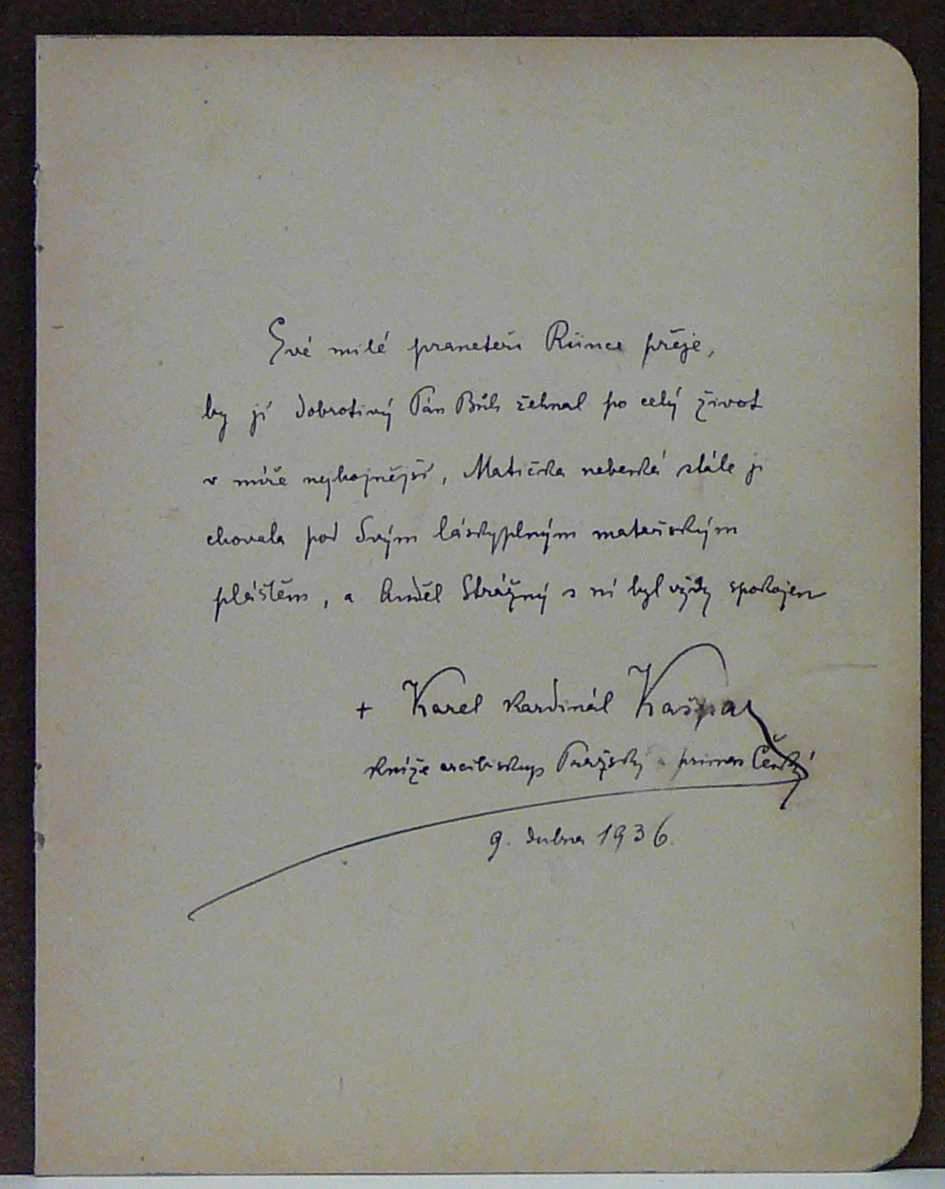 Své milé praneteři Růnce přeje,
by jí dobrotivý Pán Bůh žehnal po celý život
v míře nejhojnější, Matička nebeská stále ji
chovala pod Svým láskyplným mateřským
pláštěm, a Anděl Strážný s ní byl vždy spokojen
+ Karel Kardinál Kašpar
kníže arcibiskup Pražský a primas Český
9. dubna 1936.